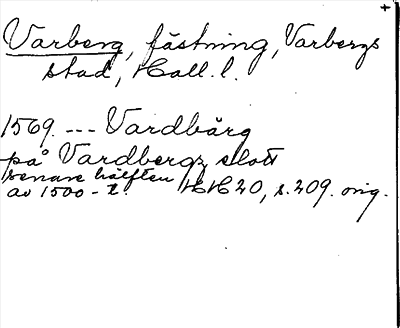 +
Varberg, fästning, Varbergs
stad, Hall. l.
1569. --- Vardbårg
på Vardbergz slott
senare hälften
av 1500-t. HH 20, s. 209. orig.